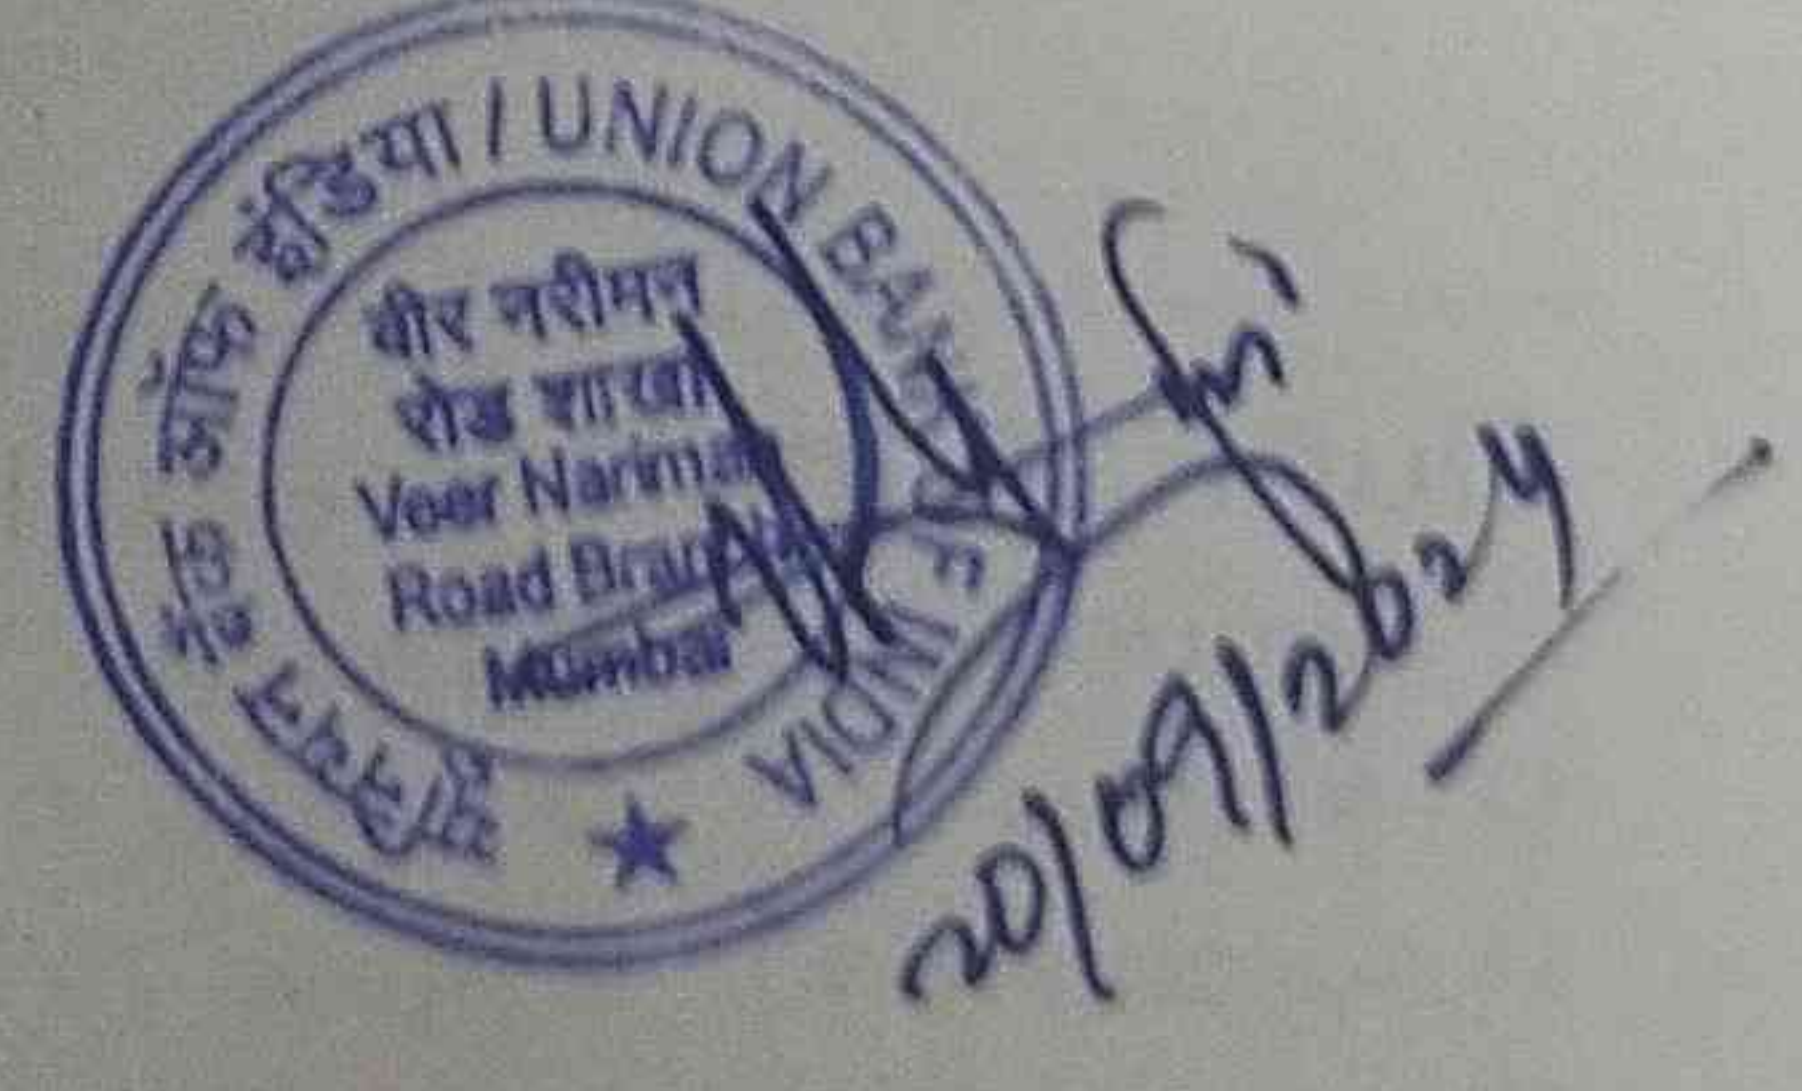 यूनियन बैंक ऑफ इंडिया / UNION BANK OF INDIA
वीर नरीमन
रोड शाखा
Veer Nariman
Road Branch
Mumbai
20/09/2024